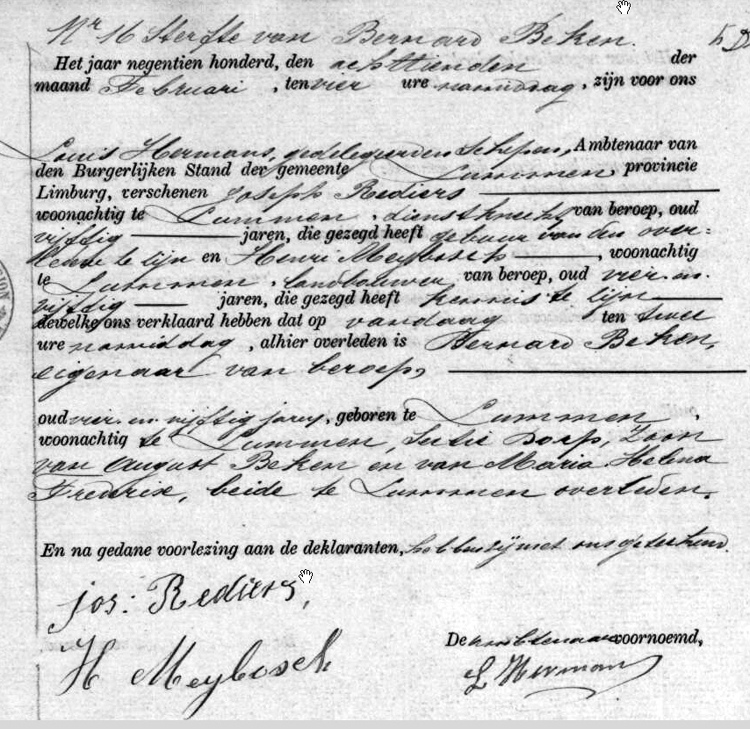 Nr 16 Sterfte van Bernard Beken.
Het jaar negentien honderd, den achttienden der
maand Februari, ten vier ure namiddag, zijn voor ons
Louis Hermans, gedelegeerden Schepen, Ambtenaar van
den Burgerlijken Stand der gemeente Lummen provincie
Limburg, verschenen Joseph Rediers
woonachtig te Lummen, dienstknecht van beroep, oud
vijftig jaren, die gezegd heeft gebuur van den over-
ledene te zijn en Henri Meybosch, woonachtig
te Lummen, landbouwer van beroep, oud vier en
vijftig jaren, die gezegd heeft kennis te zijn
dewelke ons verklaard hebben dat op vandaag ten twee
ure namiddag, alhier overleden is Bernard Beken,
eigenaar van beroep,
oud vier en vijftig jaren, geboren te Lummen,
woonachtig te Lummen, Sectie Dorp, Zoon
van August Beken en van Maria Helena
Frederix, beide te Lummen overleden.
En na gedane voorlezing aan de deklaranten, hebben zij met ons geteekend.
Jos: Rediers,
De ambtenaar voornoemd,
H Meybosch
L Hermans